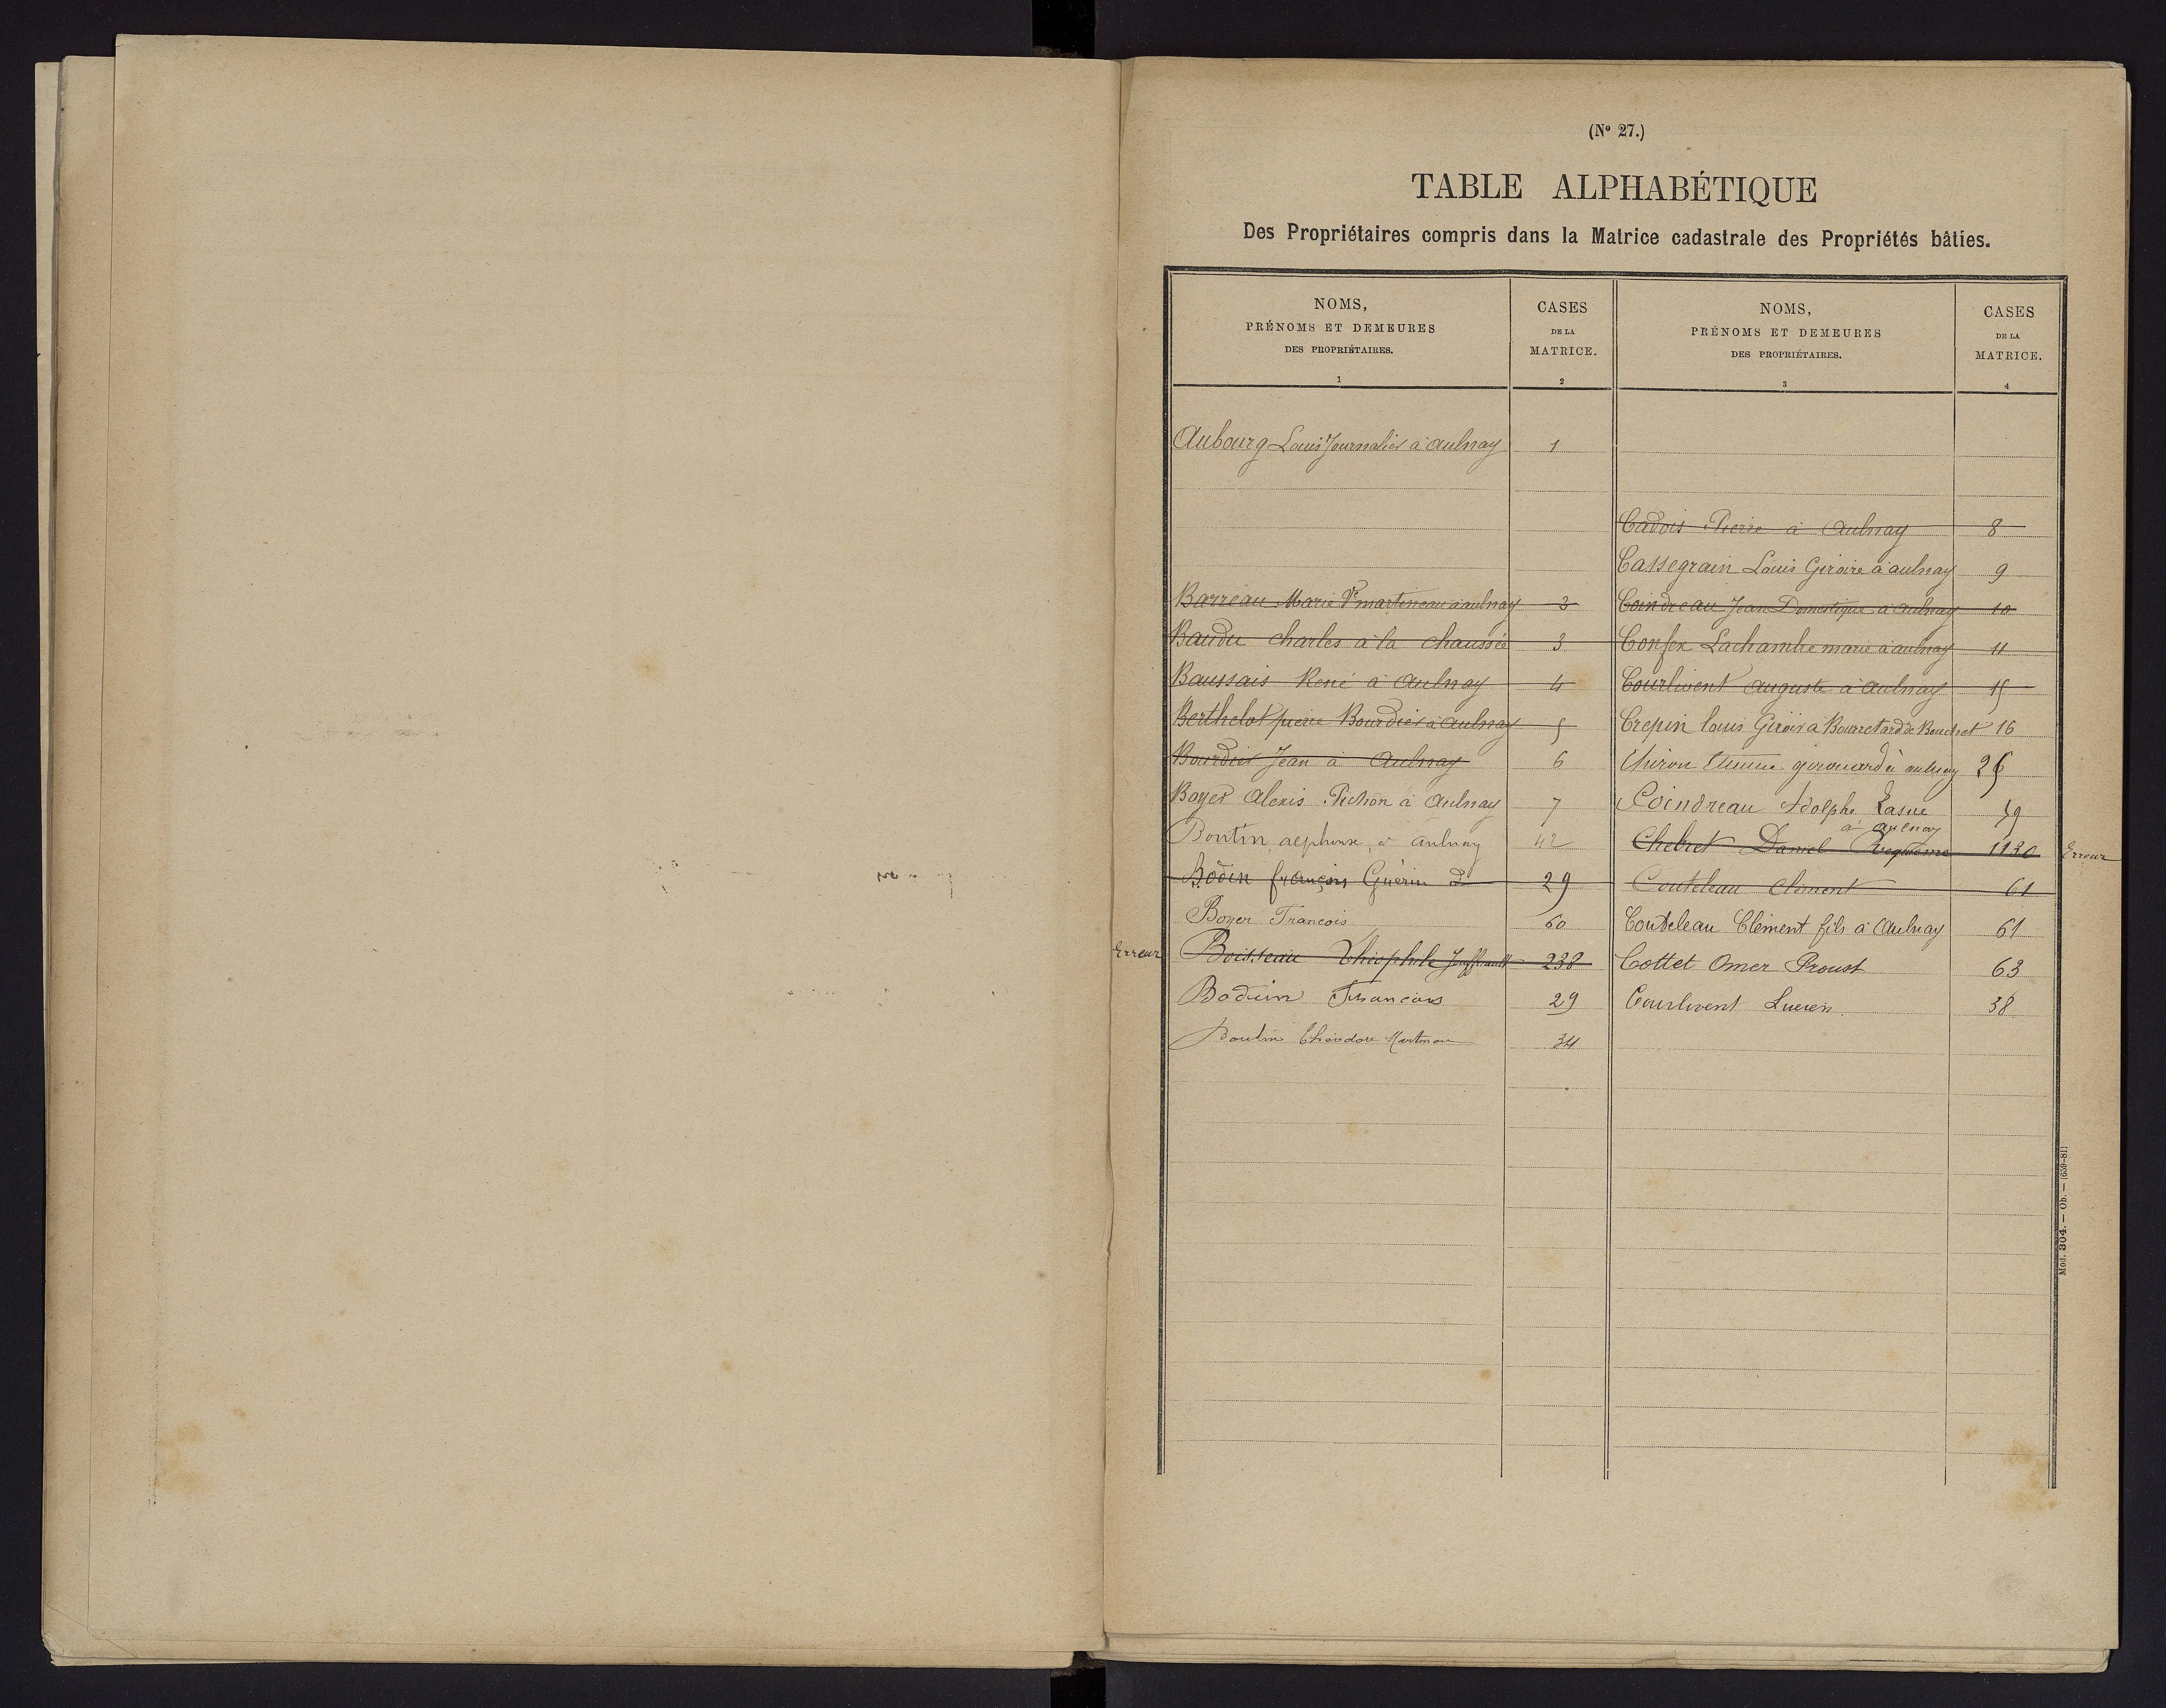 (Nº 27.)
TABLE ALPHABÉTIQUE
Des Propriétaires compris dans la Matrice cadastrale des Propriétés bâties.
NOMS,
PRÉNOMS ET DEMEURES
DES PROPRIÉTAIRES.
1
CASES
DE LA
MATRICE.
2
NOMS,
PRÉNOMS ET DEMEURES
DES PROPRIÉTAIRES.
3
CASES
DE LA
MATRICE.
4
Aubourg Louis Journalier à aulnay 1
Barreau Marie Ve martineau à aulnay
Baudu charles à la chaussée 3
Baussais René à Aulnay 4
Berthelot pierre Bourdier à aulnay 5
Bourdier Jean à Aulnay 6
Boyer Alexis Pichon à Aulnay 7
Boutin, alphonse, à aulnay 42
Bodin françois Guérin d 29
Boyer Francois 60
Erreur Boisseau Théophile 238
Boduin Francois 29
Boutin Théodore 34
Cadois Pierre à Aulnay 8
Cassegrain Louis Giroire à aulnay 9
Coindreau Jean Domestique à aulnay 10
Confex Lachambre marie à aulnay 11
Courlivent auguste à Aulnay 15
Crepin louis Girois a Bourretard de Bouchet 16
Chiron Etienne girouard à aulnay
Coindreau Adolphe Lasne
à aulnay
Chebret Daniel 1130 Erreur
Couteleau clément 61
Couteleau Clément fils à Aulnay 61
Cottet Omer Proust 63
Courlivent Lucien. 38
Mod. 304. — Ob. — (659-81)